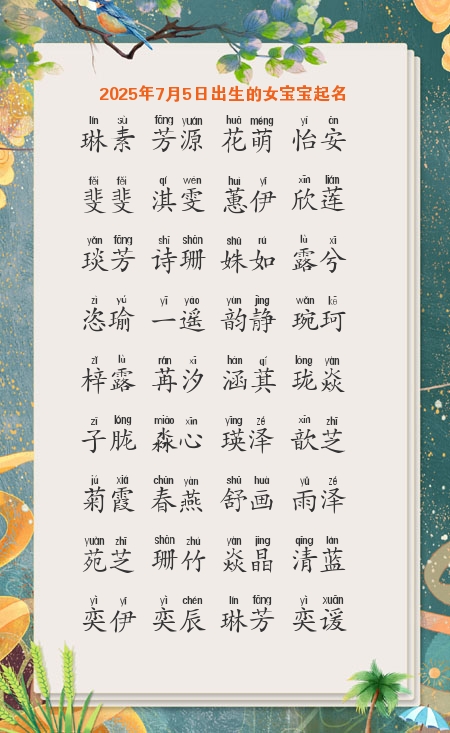 2025年7月5日出生的女宝宝起名
lín sù fāng yuán huā méng yí ān
琳素 芳源 花萌 怡安
fěi fěi qí wén huì yī xīn lián
斐斐 淇雯 蕙伊 欣莲
yǎn fāng shī shān shū rú lù xī
琰芳 诗珊 姝如 露兮
zì yú yī yáo yùn jìng wǎn kē
恣瑜 一遥 韵静 琬珂
zǐ lù rǎn xī hán qí lóng yàn
梓露 苒汐 涵萁 珑焱
zǐ lóng miǎo xīn yīng zé xīn zhī
子胧 淼心 瑛泽 歆芝
jú xiá chūn yàn shū huà yǔ zé
菊霞 春燕 舒画 雨泽
yuàn zhī shān zhú yàn jīng qīng lán
苑芝 珊竹 焱晶 清蓝
yì yī yì chén lín fāng yì xuān
奕伊 奕辰 琳芳 奕谖